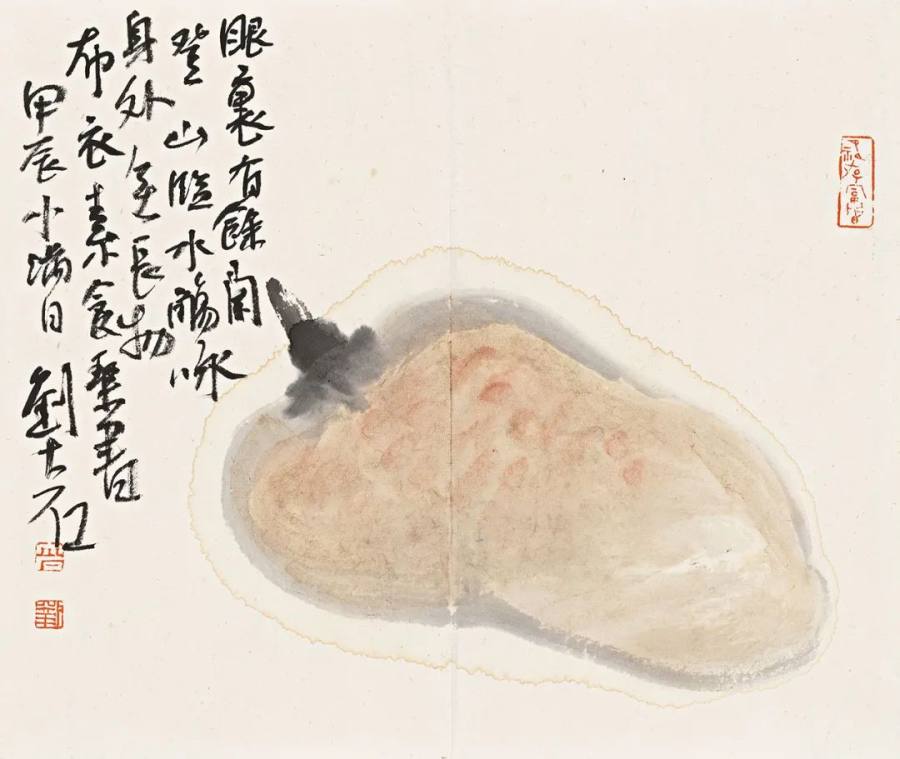 眼裏有餘閑
登山臨水觴詠
身外無長物
布衣素食琴書
甲辰小滿日 劉
劉